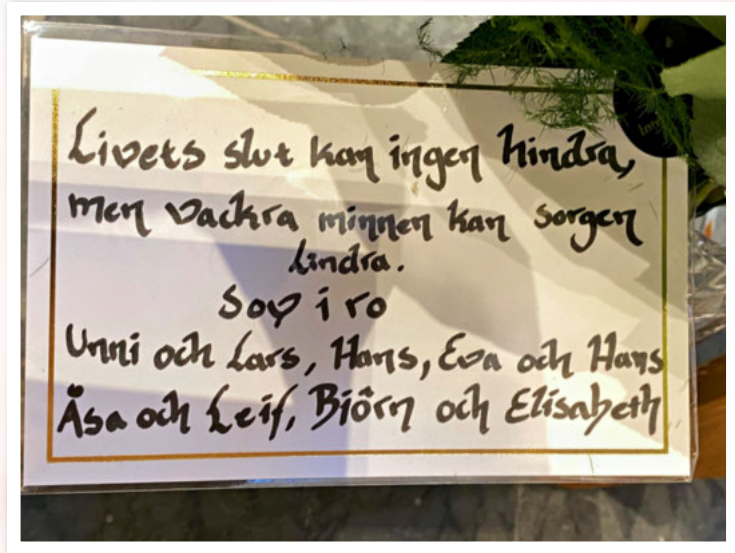 Livets slut kan ingen hindra,
men vackra minnen kan sorgen
lindra.
Sov i ro
Unni och Lars, Hans, Eva och Hans
Åsa och Leif, Björn och Elisabeth